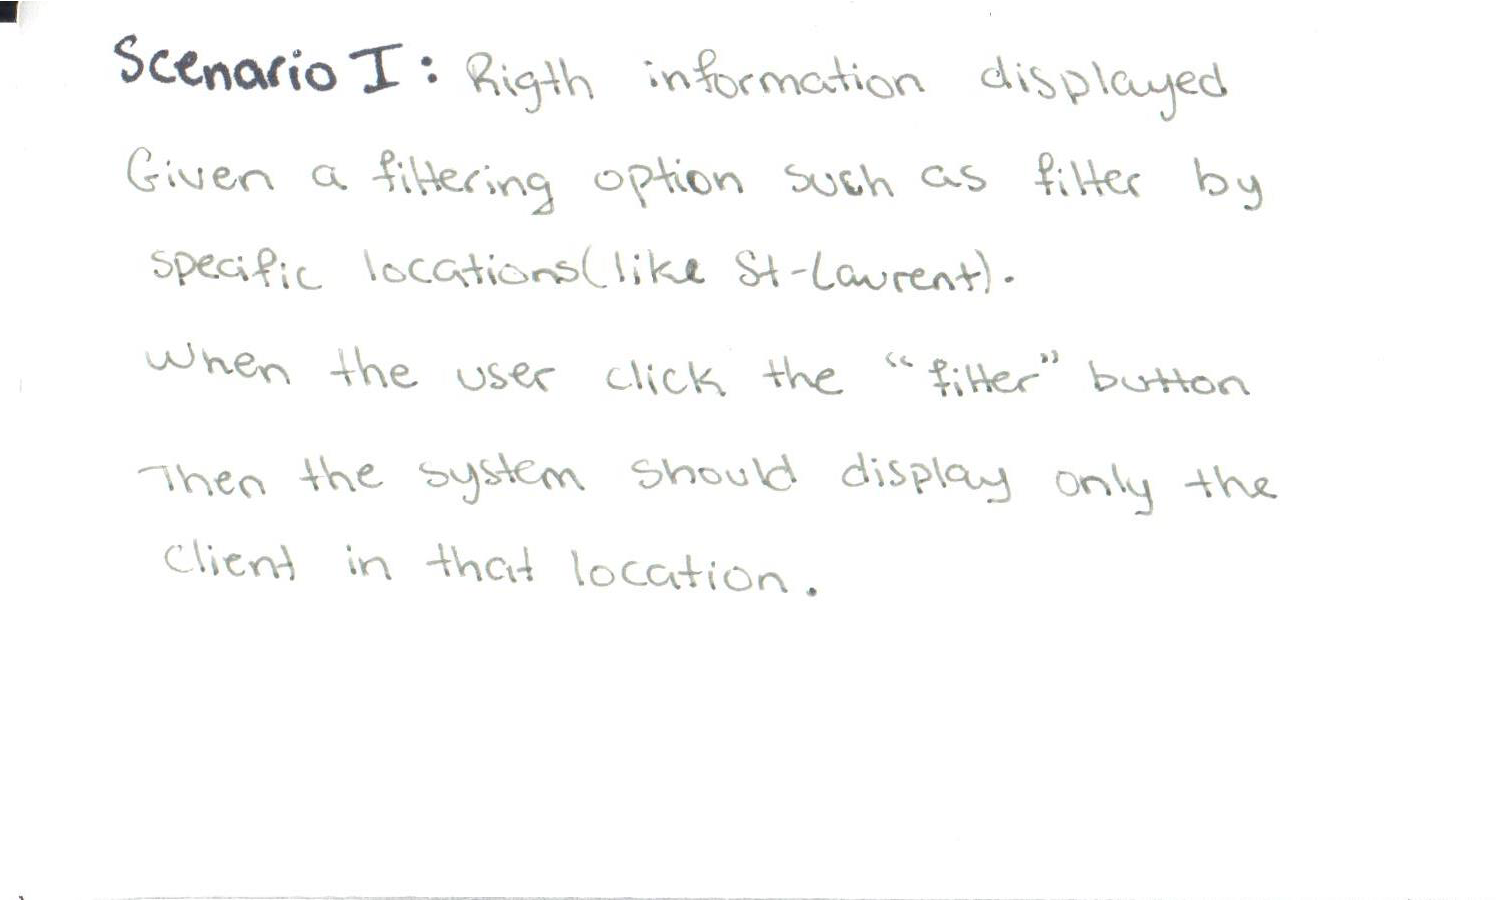 Scenario I: Rigth information displayed
Given a filtering option such as filter by
specific locations(like St-Laurent).
When the user click the “filter” button
Then the system should display only the
Client in that location.